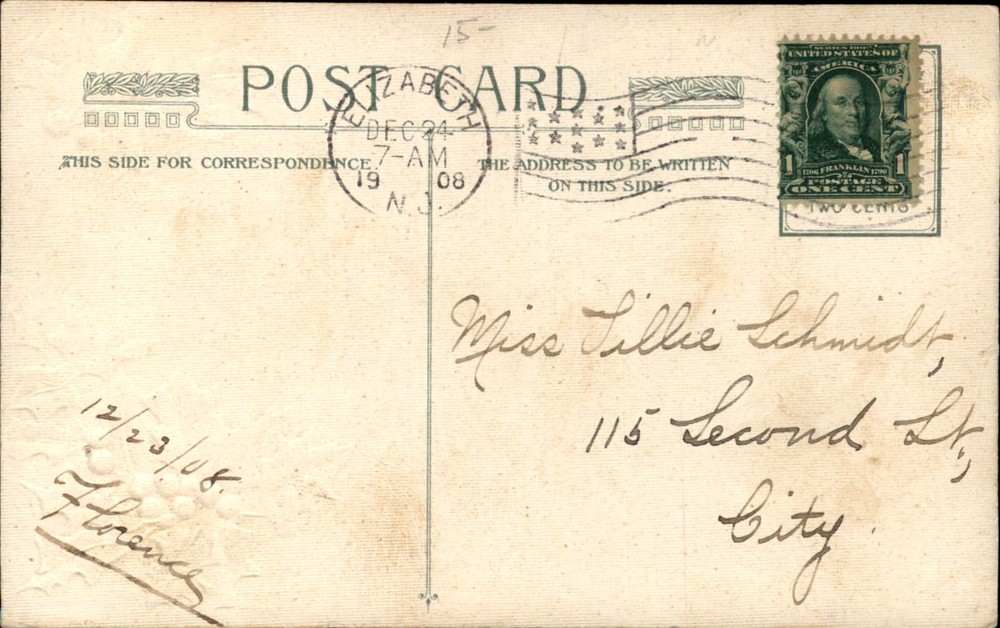 15-
POST CARD
ELIZABETH
DEC 24
7-AM
1908
N.J.
THIS SIDE FOR CORRESPONDENCE.
THE ADDRESS TO BE WRITTEN
ON THIS SIDE.
SERIES 1902
UNITED STATES OF
AMERICA
1 1
1706 FRANKLIN 1790
POSTAGE
ONE CENT
TWO CENTS
Miss Tillie Schmidt,
115 Second St,
City.
12/23/08.
Florence